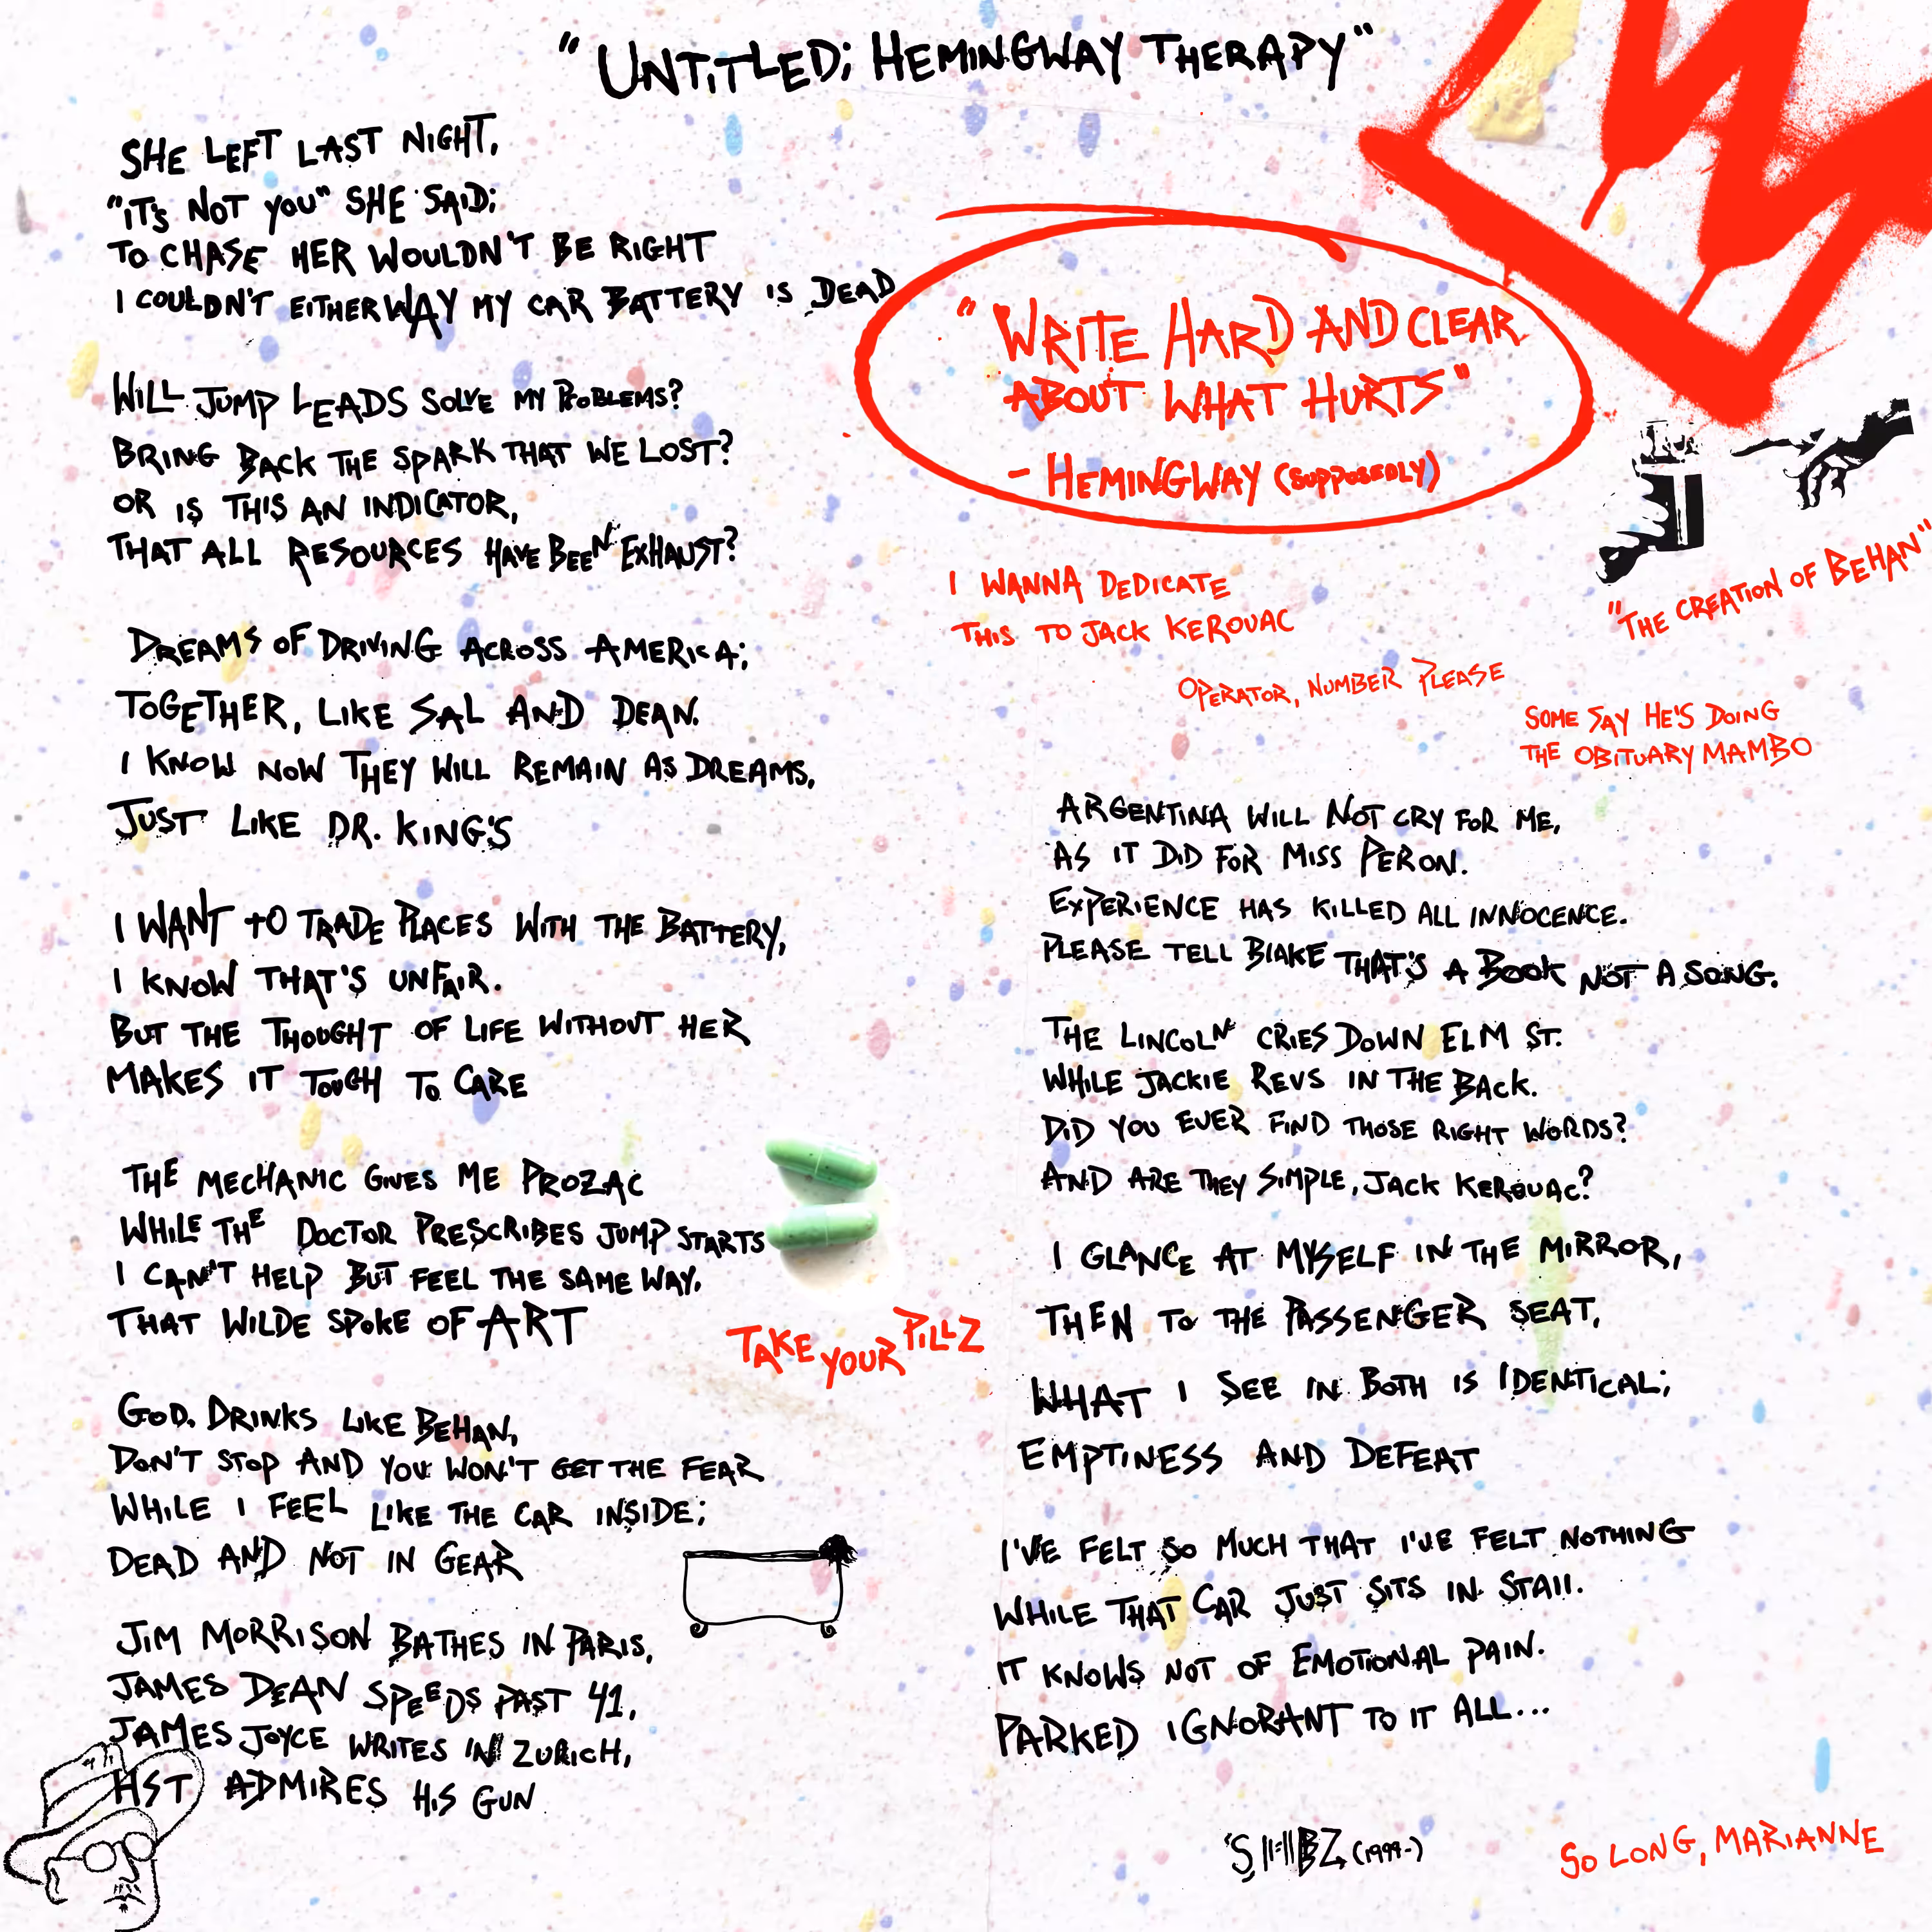 "UNTITLED; HEMINGWAY THERAPY"
SHE LEFT LAST NIGHT,
"IT'S NOT YOU" SHE SAID;
TO CHASE HER WOULDN'T BE RIGHT
I COULDN'T EITHERWAY MY CAR BATTERY IS DEAD
WILL JUMP LEADS SOLVE MY PROBLEMS?
BRING BACK THE SPARK THAT WE LOST?
OR IS THIS AN INDICATOR,
THAT ALL RESOURCES HAVE BEEN EXHAUST?
DREAMS OF DRIVING ACROSS AMERICA;
TOGETHER, LIKE SAL AND DEAN.
I KNOW NOW THEY WILL REMAIN AS DREAMS,
JUST LIKE DR. KING'S
I WANT TO TRADE PLACES WITH THE BATTERY,
I KNOW THAT'S UNFAIR.
BUT THE THOUGHT OF LIFE WITHOUT HER
MAKES IT TOUGH TO CARE
THE MECHANIC GIVES ME PROZAC
WHILE THE DOCTOR PRESCRIBES JUMP STARTS
I CAN'T HELP BUT FEEL THE SAME WAY.
THAT WILDE SPOKE OF ART
TAKE YOUR PILLZ
GOD. DRINKS LIKE BEHAN,
DON'T STOP AND YOU WON'T GET THE FEAR
WHILE I FEEL LIKE THE CAR INSIDE;
DEAD AND NOT IN GEAR
JIM MORRISON BATHES IN PARIS,
JAMES DEAN SPEEDS PAST 41,
JAMES JOYCE WRITES IN ZURICH,
HST ADMIRES HIS GUN
"WRITE HARD AND CLEAR
ABOUT WHAT HURTS"
- HEMINGWAY (SUPPOSEDLY)
"THE CREATION OF BEHAN"
I WANNA DEDICATE
THIS TO JACK KEROUAC
OPERATOR, NUMBER PLEASE
SOME SAY HE'S DOING
THE OBITUARY MAMBO
ARGENTINA WILL NOT CRY FOR ME,
AS IT DID FOR MISS PERON.
EXPERIENCE HAS KILLED ALL INNOCENCE.
PLEASE TELL BLAKE THAT'S A BOOK NOT A SONG.
THE LINCOLN CRIES DOWN ELM ST.
WHILE JACKIE REVS IN THE BACK.
DID YOU EVER FIND THOSE RIGHT WORDS?
AND ARE THEY SIMPLE, JACK KEROUAC?
I GLANCE AT MYSELF IN THE MIRROR,
THEN TO THE PASSENGER SEAT,
WHAT I SEE IN BOTH IS IDENTICAL;
EMPTINESS AND DEFEAT
I'VE FELT SO MUCH THAT I'VE FELT NOTHING
WHILE THAT CAR JUST SITS IN STALL.
IT KNOWS NOT OF EMOTIONAL PAIN.
PARKED IGNORANT TO IT ALL...
(1999-)
SO LONG, MARIANNE